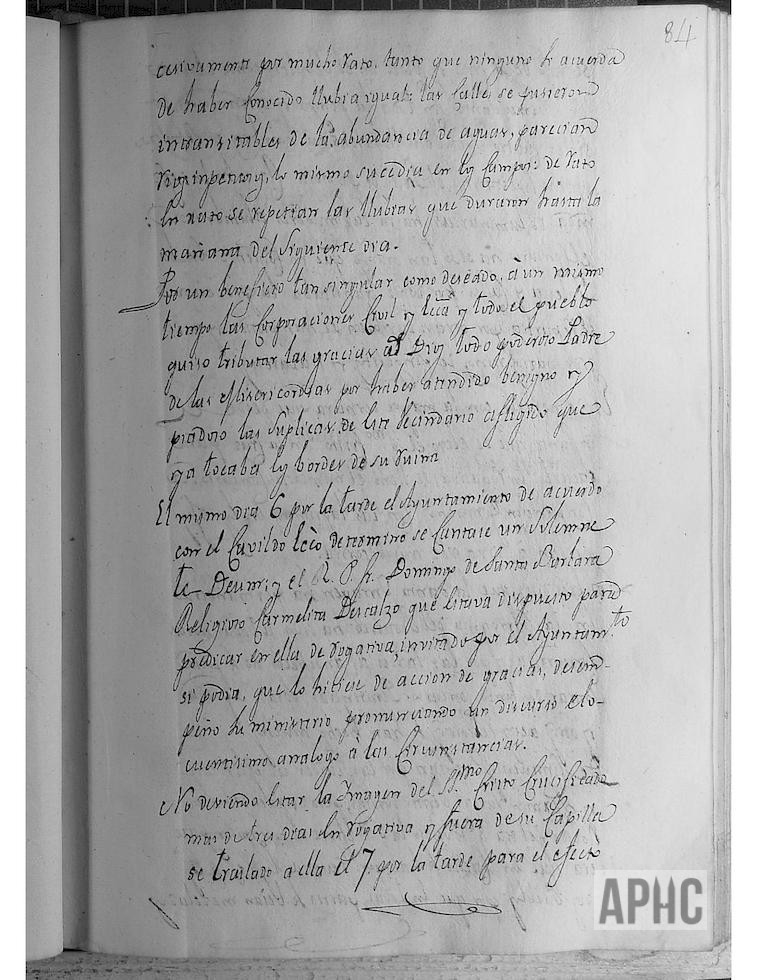 84
cesivamente por mucho rato, tanto que ninguno se acuerda
de haber Conocido llubia igual; las Calles se pusieron
intransitables de la abundancia de aguas, parecian
Rios, lo mismo sucedia en los Campos: de rato
en rato se repetian las llubias que duraron hasta la
mañana del siguiente dia.
Por un beneficio tan singular como deseado, à un mismo
tiempo las Corporaciones Civil y Ecca y todo el pueblo
quiso tributar las gracias al Dios todo poderoso Padre
de las Misericordias por haber atendido benigno y
piadoso las suplicas de este Vecindario afligido que
ya tocaba los bordes de su ruina
El mismo dia 6 por la tarde el Ayuntamiento de acuerdo
con el Cavildo Ecco determino se Cantase un Solemne
Te Deum; y el R. P. Fr. Domingo de Santa Barbara
Religioso Carmelita Descalzo que estava dispuesto para
predicar en ella de rogativa, invitado por el Ayuntam.to
si podia, que lo hiciese de accion de gracias, desem-
peño su ministerio pronunciando un discurso elo-
cuentisimo analogo à las Circunstancias.
No deviendo estar la Imagen del SS.mo Cristo Crucificado
mas de tres dias en rogativa y fuera de su Capilla
se traslado a ella el 7 por la tarde para el efecto
APHC